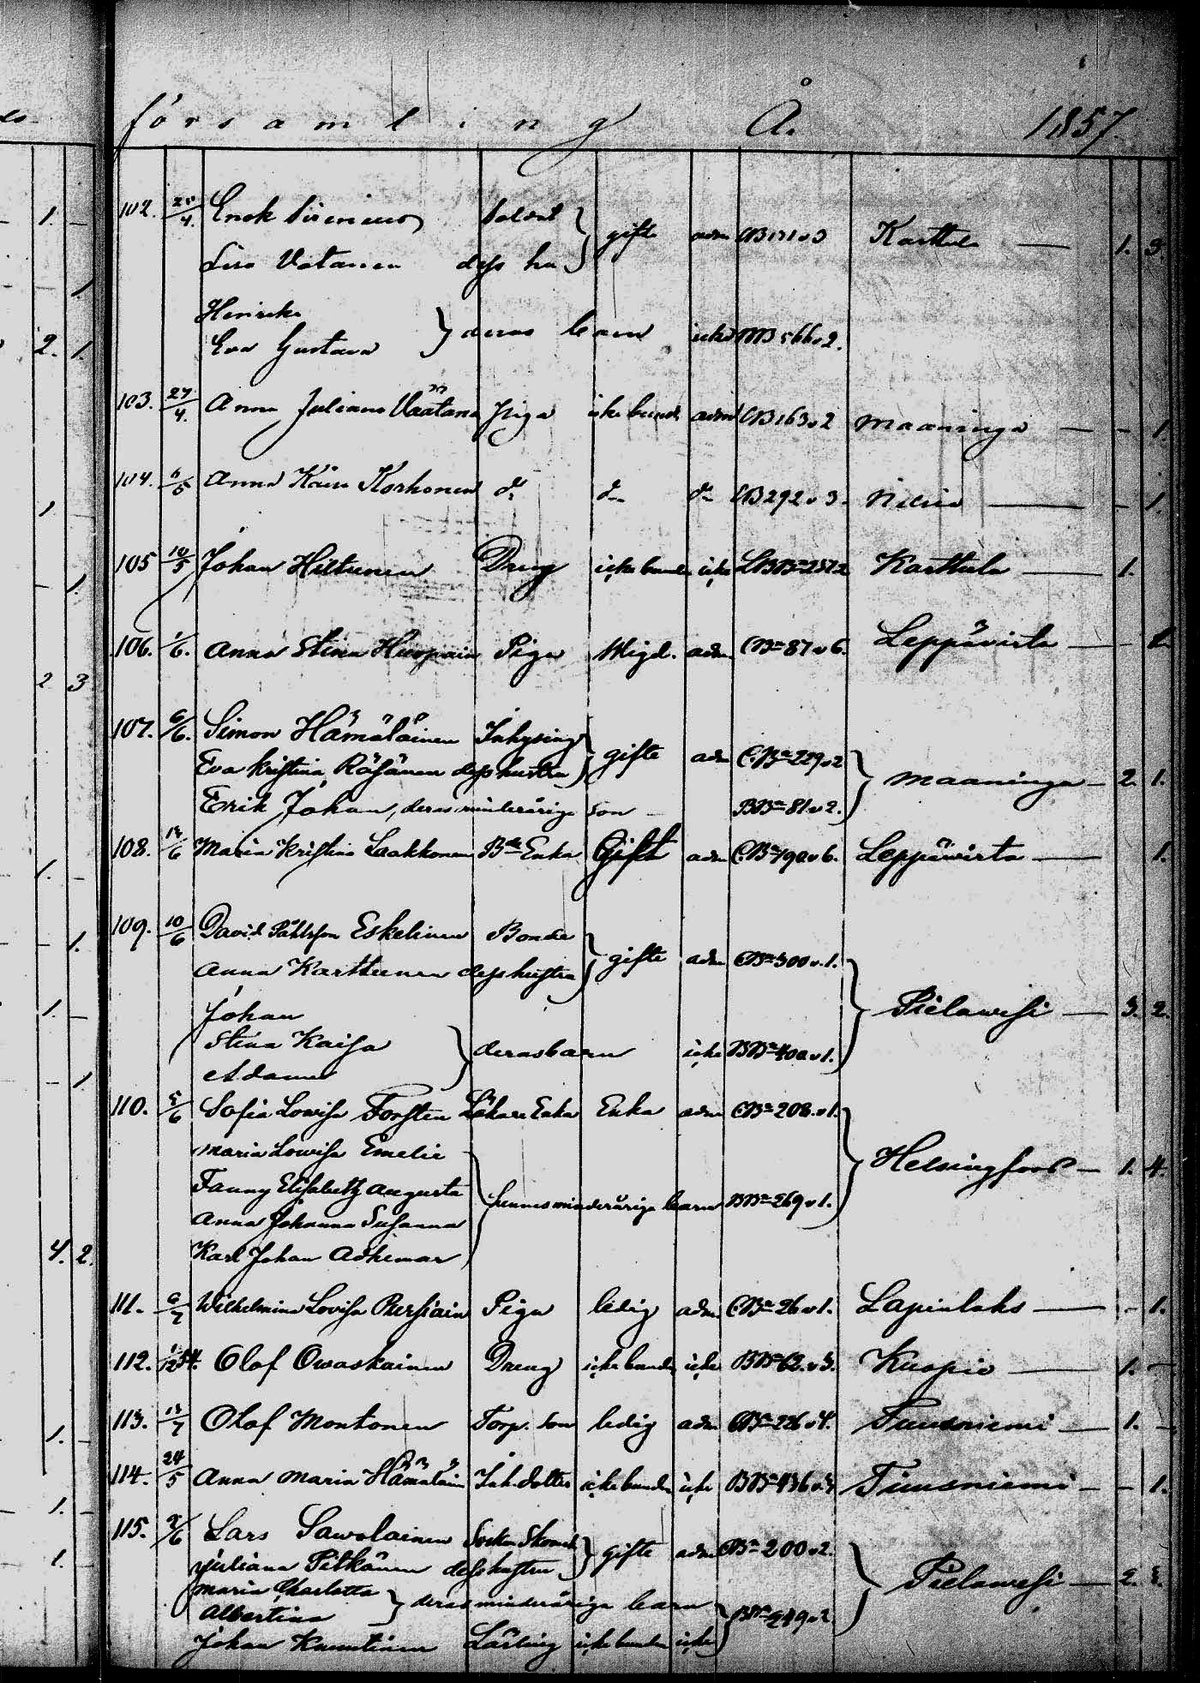 församling År 1857
102. 20/4. Enok Sirenius Soldat gifte adm CB 131 v 3 Karttula 1. 3.
Lisa Vatanen dess hu
Henrika
Eva Gustava deras barn icke BB 566 v 2.
103. 27/4. Anna Juliana Väätänen Piga icke bund. adm CB 163 v 2 Maaninga 1.
104. 6/5 Anna Kaisa Korhonen do do do CB 292 v 3. Nilsiä 1.
105 10/5 Johan Hiltunen Dreng icke bunde icke Karttula 1.
106. 1/6. Anna Stina Piga adm CBa 87 v 6. Leppävirta 1.
107. 6/6. Simon Hämäläinen Inhysing gifte adm CBa 229 v 2 Maaninga 2. 1.
Eva Kristina Räsänen dess hustru
Erik Johan, deras minderårige son BBa 81 v 2.
108. 14/6 Maria Kristina Laakkonen Bde Enka Gift adm CBa 190 v 6. Leppävirta 1.
109. 10/6 David Påhlsson Eskelinen Bonde gifte adm CBa 300 v. 1. Pielavesi 3. 2.
Anna Karttunen dess hustru
Johan
Stina Kaisa deras barn icke BBa 400 v 1.
Adam
110. 5/6 Sofia Lovisa Forsten Läkare Enka Enka adm CBa 208. v 1. Helsingfors 1. 4.
Maria Lovisa Emelie
Fanny Elisabeth Augusta hennes minderårige barn BBa 269 v 1.
Anna Johanna Susanna
Karl Johan Adhemar
111. 6/7 Wilhelmina Lovisa Persiain Piga ledig adm CBa 26 v 1. Lapinlaks 1.
112. 1/12 54. Olof Ovaskainen Dreng icke bunde icke BBa 62. v 3. Kuopio 1.
113. 13/7 Olof Montonen Torp. Son ledig adm CBa 226 v 4. Tuusniemi 1.
114. 24/5 Anna Maria Hämäläin Inh. dotter icke bunde icke BBa 436 v 3 Tuusniemi 1.
115. 2/6 Lars Savolainen Socken Skomak gifte adm CBa 200 v 2. Pielavesi 2.
Juliana Pitkänen dess hustru
Maria Charlotta
Albertina deras minderåriga barn BBa 249 v 2
Johan Lärling icke bunden icke